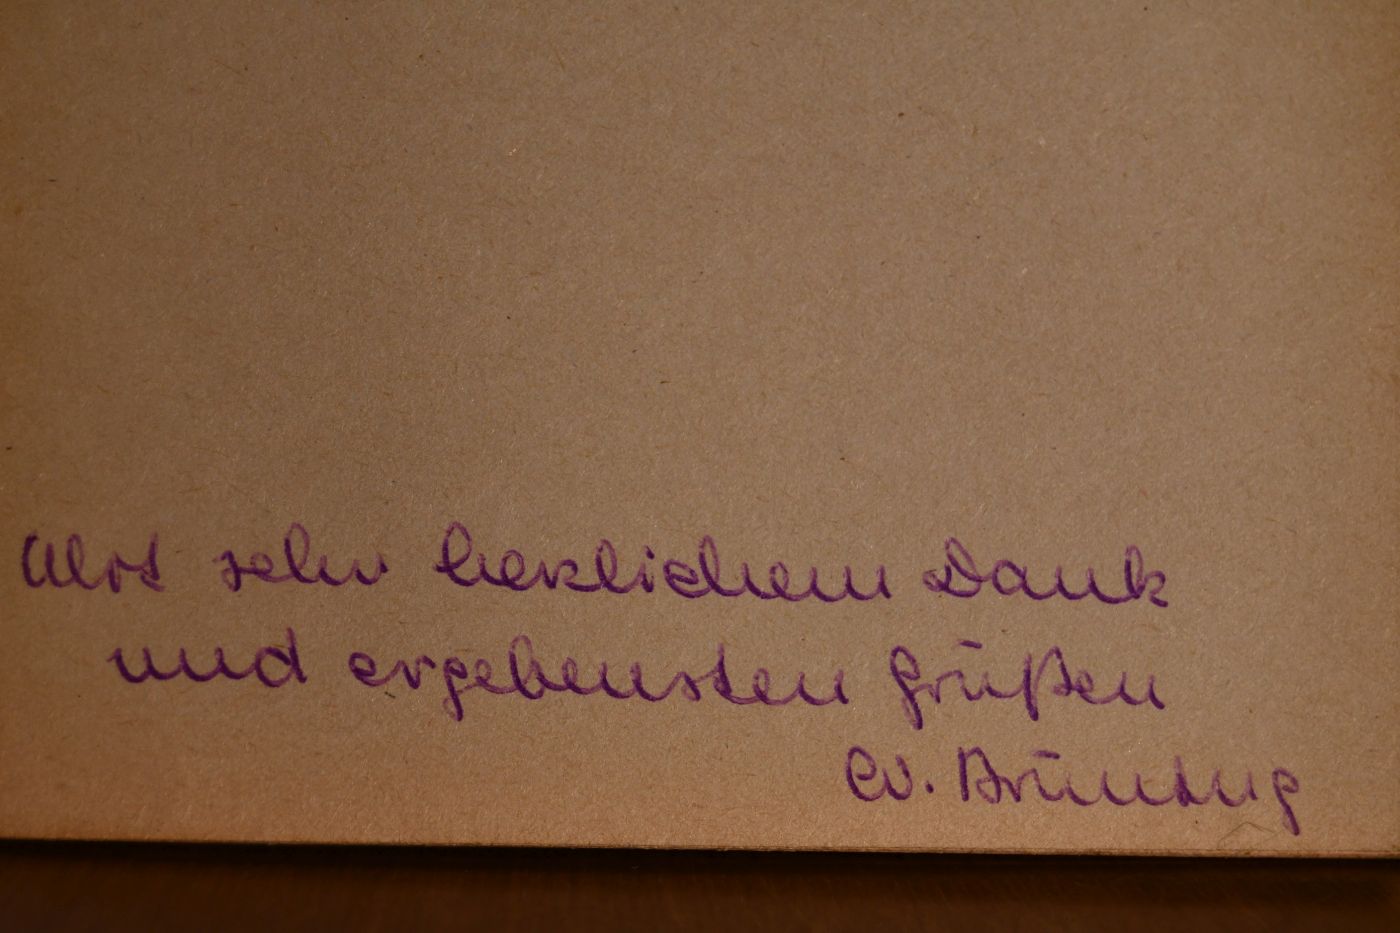 sehr herzlichem Dank
und ergebensten Grüßen
W. Brünung